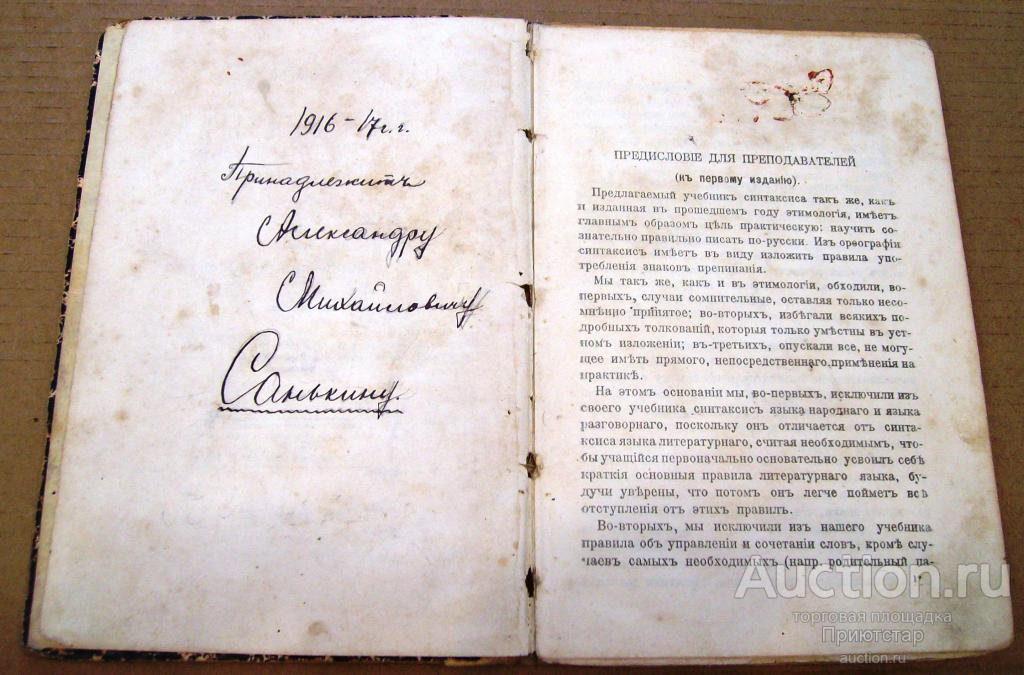 1916-17 г.г.
Принадлежитъ
Александру
Михайловичу
Санькину.
ПРЕДИСЛОВІЕ ДЛЯ ПРЕПОДАВАТЕЛЕЙ
(къ первому изданію).
Предлагаемый учебникъ синтаксиса такъ же, какъ
и изданная въ прошедшемъ году этимологія, имѣетъ
главнымъ образомъ цѣль практическую: научить со-
знательно правильно писать по-русски. Изъ орѳографіи
синтаксисъ имѣетъ въ виду изложить правила упо-
требленія знаковъ препинанія.
Мы такъ же, какъ и въ этимологіи, обходили, во-
первыхъ, случаи сомнительные, оставляя только несо-
мнѣнно принятое; во-вторыхъ, избѣгали всякихъ по-
дробныхъ толкованій, которыя только умѣстны въ уст-
номъ изложеніи; въ-третьихъ, опускали все, не могу-
щее имѣть прямого, непосредственнаго примѣненія на
практикѣ.
На этомъ основаніи мы, во-первыхъ, исключили изъ
своего учебника синтаксисъ языка народнаго и языка
разговорнаго, поскольку онъ отличается отъ синта-
ксиса языка литературнаго, считая необходимымъ, что-
бы учащійся первоначально основательно усвоилъ себѣ
краткія основныя правила литературнаго языка, бу-
дучи увѣрены, что потомъ онъ легче пойметъ всѣ
отступленія отъ этихъ правилъ.
Во-вторыхъ, мы исключили изъ нашего учебника
правила объ управленіи и сочетаніи словъ, кромѣ слу-
чаевъ самыхъ необходимыхъ (напр. родительный па-
1*
Auction.ru
торговая площадка
Приютстар
auction.ru